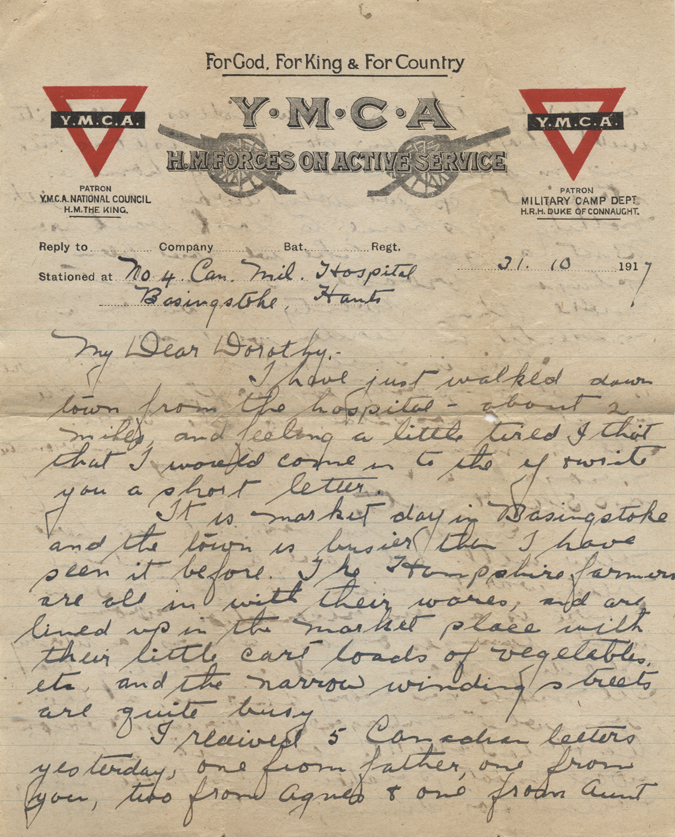 For God, For King & For Country
Y·M·C·A
H.M FORCES ON ACTIVE SERVICE
Y.M.C.A.
PATRON
Y.M.C.A. NATIONAL COUNCIL
H.M. THE KING.
Y.M.C.A.
PATRON
MILITARY CAMP DEPT.
H.R.H. DUKE OF CONNAUGHT.
Reply to Company Bat. Regt.
Stationed at No 4 Can. Mil. Hospital 31. 10 1917
Basingstoke, Hants
My Dear Dorothy.-
I have just walked down
town from the hospital - about 2
miles, and feeling a little tired I thot
that I would come in to the y & write
you a short letter.
It is market day in Basingstoke
and the town is busier than I have
seen it before. The Hampshire farmers
are all in with their wares, and are
lined up in the market place with
their little cart loads of vegetables,
etc, and the narrow winding streets
are quite busy
I recived 5 Canadian letters
yesterday, one from father, one from
you, two from Agnes & one from Aunt